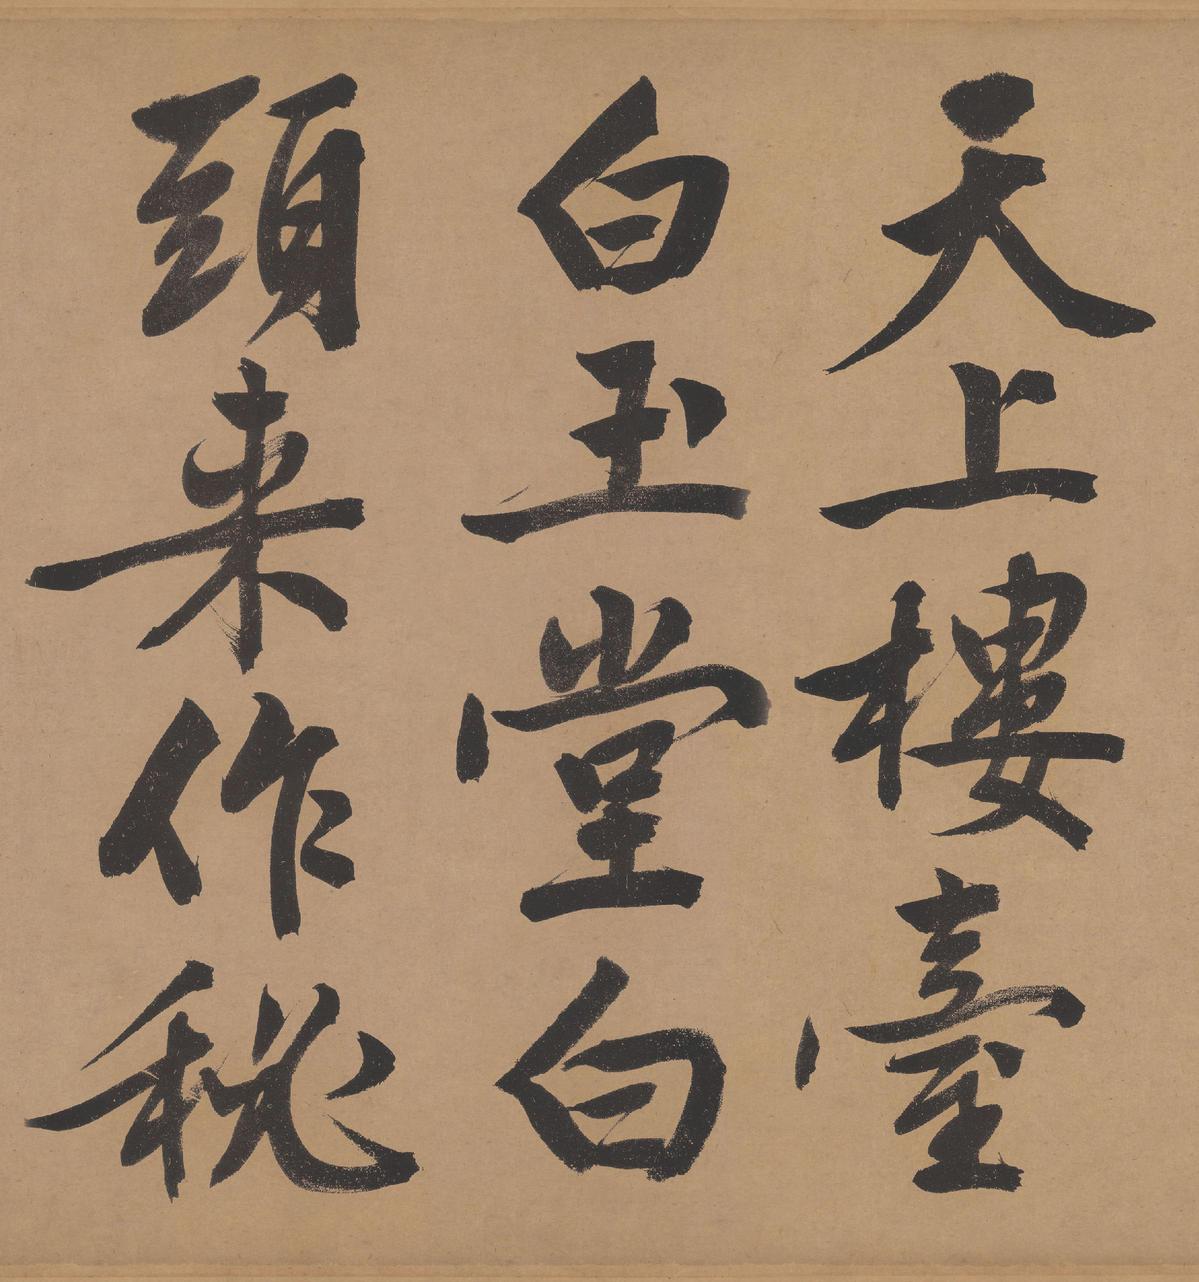 天上樓臺
白玉堂白
頭来作秘